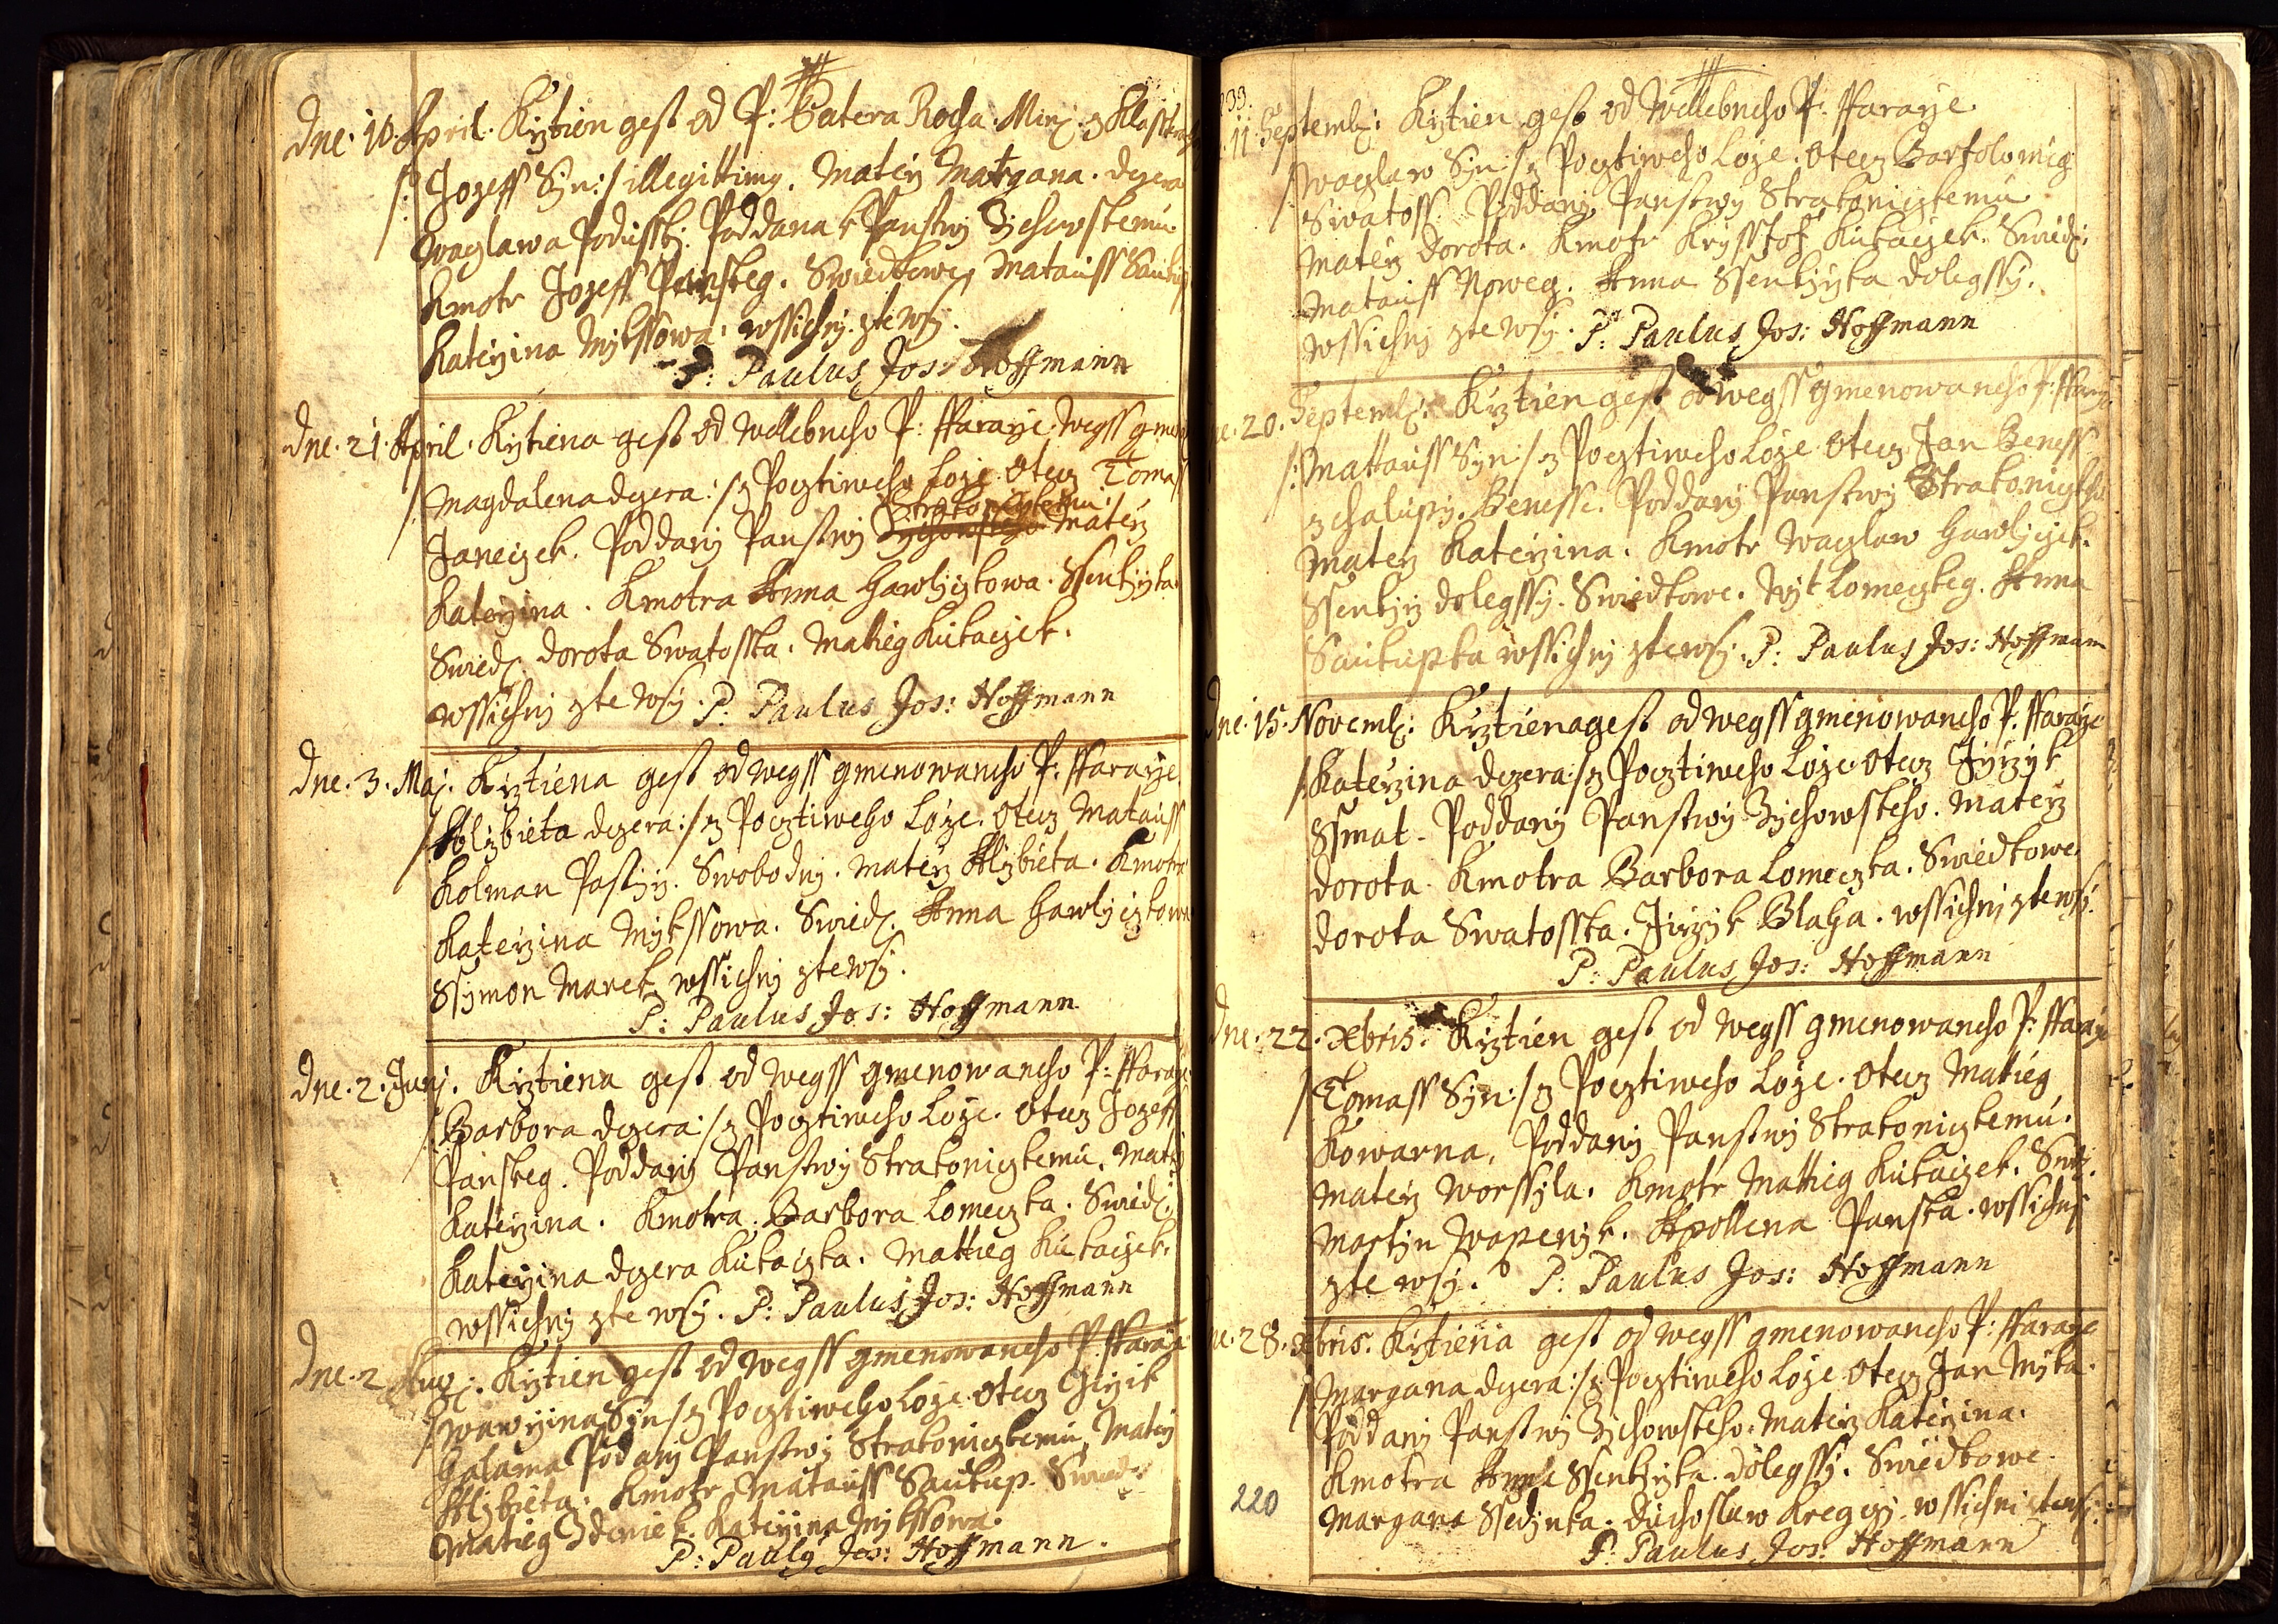 Dne 10. April. Krztien gest od P: Patera Rocha Min: z Klasstera
/: Jozeff Syn :/ illegittimý. Materz Margana. dczera
Waczlawa Podusský. Poddana k Panstwý Zichowskemu
Kmotr Jozeff Panskeg. Swiedkowe, Matauss Saukup
Katerzina Mykssowa. wssichný zte wsý.
P: Paulus Jos: Hoffmann
Dne. 21. April. Krztiena gest od Wellebneho P: Ffararze. wegss gmen
/: Magdalena dczera :/ z Pocztiweho Loze. Otecz Tomass
Strakoniczkemu
Janeczek. Poddaný Panstwý Zichowskeho Materz
Katerzina. Kmotra Anna Hawlyczkowa. Ssenkýrka.
Swied: Dorota Swatosska. Matieg Kukaczek.
wssichný zte wsý. P: Paulus Jos: Hoffmann
Dne. 3. Maj. Krztiena gest od wegss gmenowaneho P: Ffararze.
/: Alzbieta dczera :/ z Pocztiweho Loze. Otecz Matauss
Kolman Pastýrz. Swobodný. Materz Alzbieta. Kmotra
Katerzina Mykssowa. Swied: Anna Hawlyczkowa
Ssymon Marek wssichný zte wsý.
P: Paulus Jos: Hoffmann
Dne. 2. Junj. Krztiena gest od wegss gmenowaneho P: Ffararze
/: Barbora dczera :/ z Pocztiweho Loze. Otecz Jozeff
Panskeg. Poddaný Panstwý Strakoniczkemu. Materz
Katerzina. Kmotra Barbora Lomeczka. Swied:
Katerzina dczera Kukaczka. Mattieg Kukaczek.
wssichný zte wsý. P: Paulus Jos: Hoffmann
Dne. 2. Aug: Krztien gest od wegss gmenowaneho P: Ffararze
/: Wawrzina Syn :/ z Pocztiweho Loze Otecz Girzik
Halama Podaný Panstwý Strakoniczkemu, Materz
Alzbieta. Kmotr Matauss Saukup. Swied:
Matieg Zdeniek. Katerzina Mykssowa.
P: Pauly Jos: Hoffmann.
33.
11. Septemb: Krztien gest od Wellebneho P: Ffararze.
/: Waczlaw Syn :/ z Pocztiweho Loze. Otecz Bartolomieg
Swatoss. Poddaný Panstwý Strakoniczkemu
Materz Dorota. Kmotr Krysstof Kukaczek. Swied:
Matauss Noweg. Anna Ssenkýrka dolegssý.
wssichný zte wsý. P: Paulus Jos: Hoffmann
20. Septemb: Krztien gest od wegss gmenowaneho P: Ffararze
/: Mattauss Syn :/ z Pocztiweho Loze Otecz Jan Beness
z chalupý. Benesse. Poddaný Panstwý Strakoniczkeho
Materz Katerzina. Kmotr Waczlaw Hawlyczek.
Ssenkýrz dolegssý. Swiedkowe. Wýt Lomeczkeg. Anna
Saukupka wssichný zte wsý. P: Paulus Jos: Hoffmann
Dne. 15. Novemb: Krztiena gest od wegss gmenowaneho P: Ffararze
/: Katerzina dczera :/ z Pocztiweho Loze. Otecz Jyrzyk
Ssmat. Poddaný Panstwý Zichowskeho. Materz
Dorota. Kmotra Barbora Lomeczka. Swiedkowe.
Dorota Swatosska. Jirzyk Blaha. wssichný zte wsý.
P: Paulus Jos: Hoffmann
Dne. 22. Xbris. Krztien gest od wegss gmenowaneho P: Ffararze
/: Tomass Syn :/ z Pocztiweho Loze. Otecz Matieg
Kowarna. Poddaný Panstwý Strakoniczkemu.
Materz Worssyla. Kmotr Mattieg Kukaczek. Swie:
Martyn Waperzyk. Apollena Panska. wssichný
zte wsý. P: Paulus Jos: Hoffmann
28. Xbris. Krztiena gest od wegss gmenowaneho P: Ffararze
/: Margana dczera :/ z Pocztiweho Loze Otecz Jan Myka.
Poddaný Panstwý Zichowskeho. Materz Katerzina.
Kmotra Anna Ssenkýrka. dolegssý. Swiedkowe
220
Margana Ssedynka. Duchoslaw Kregczj. wssichni zte wsý.
P: Paulus Jos: Hoffmann